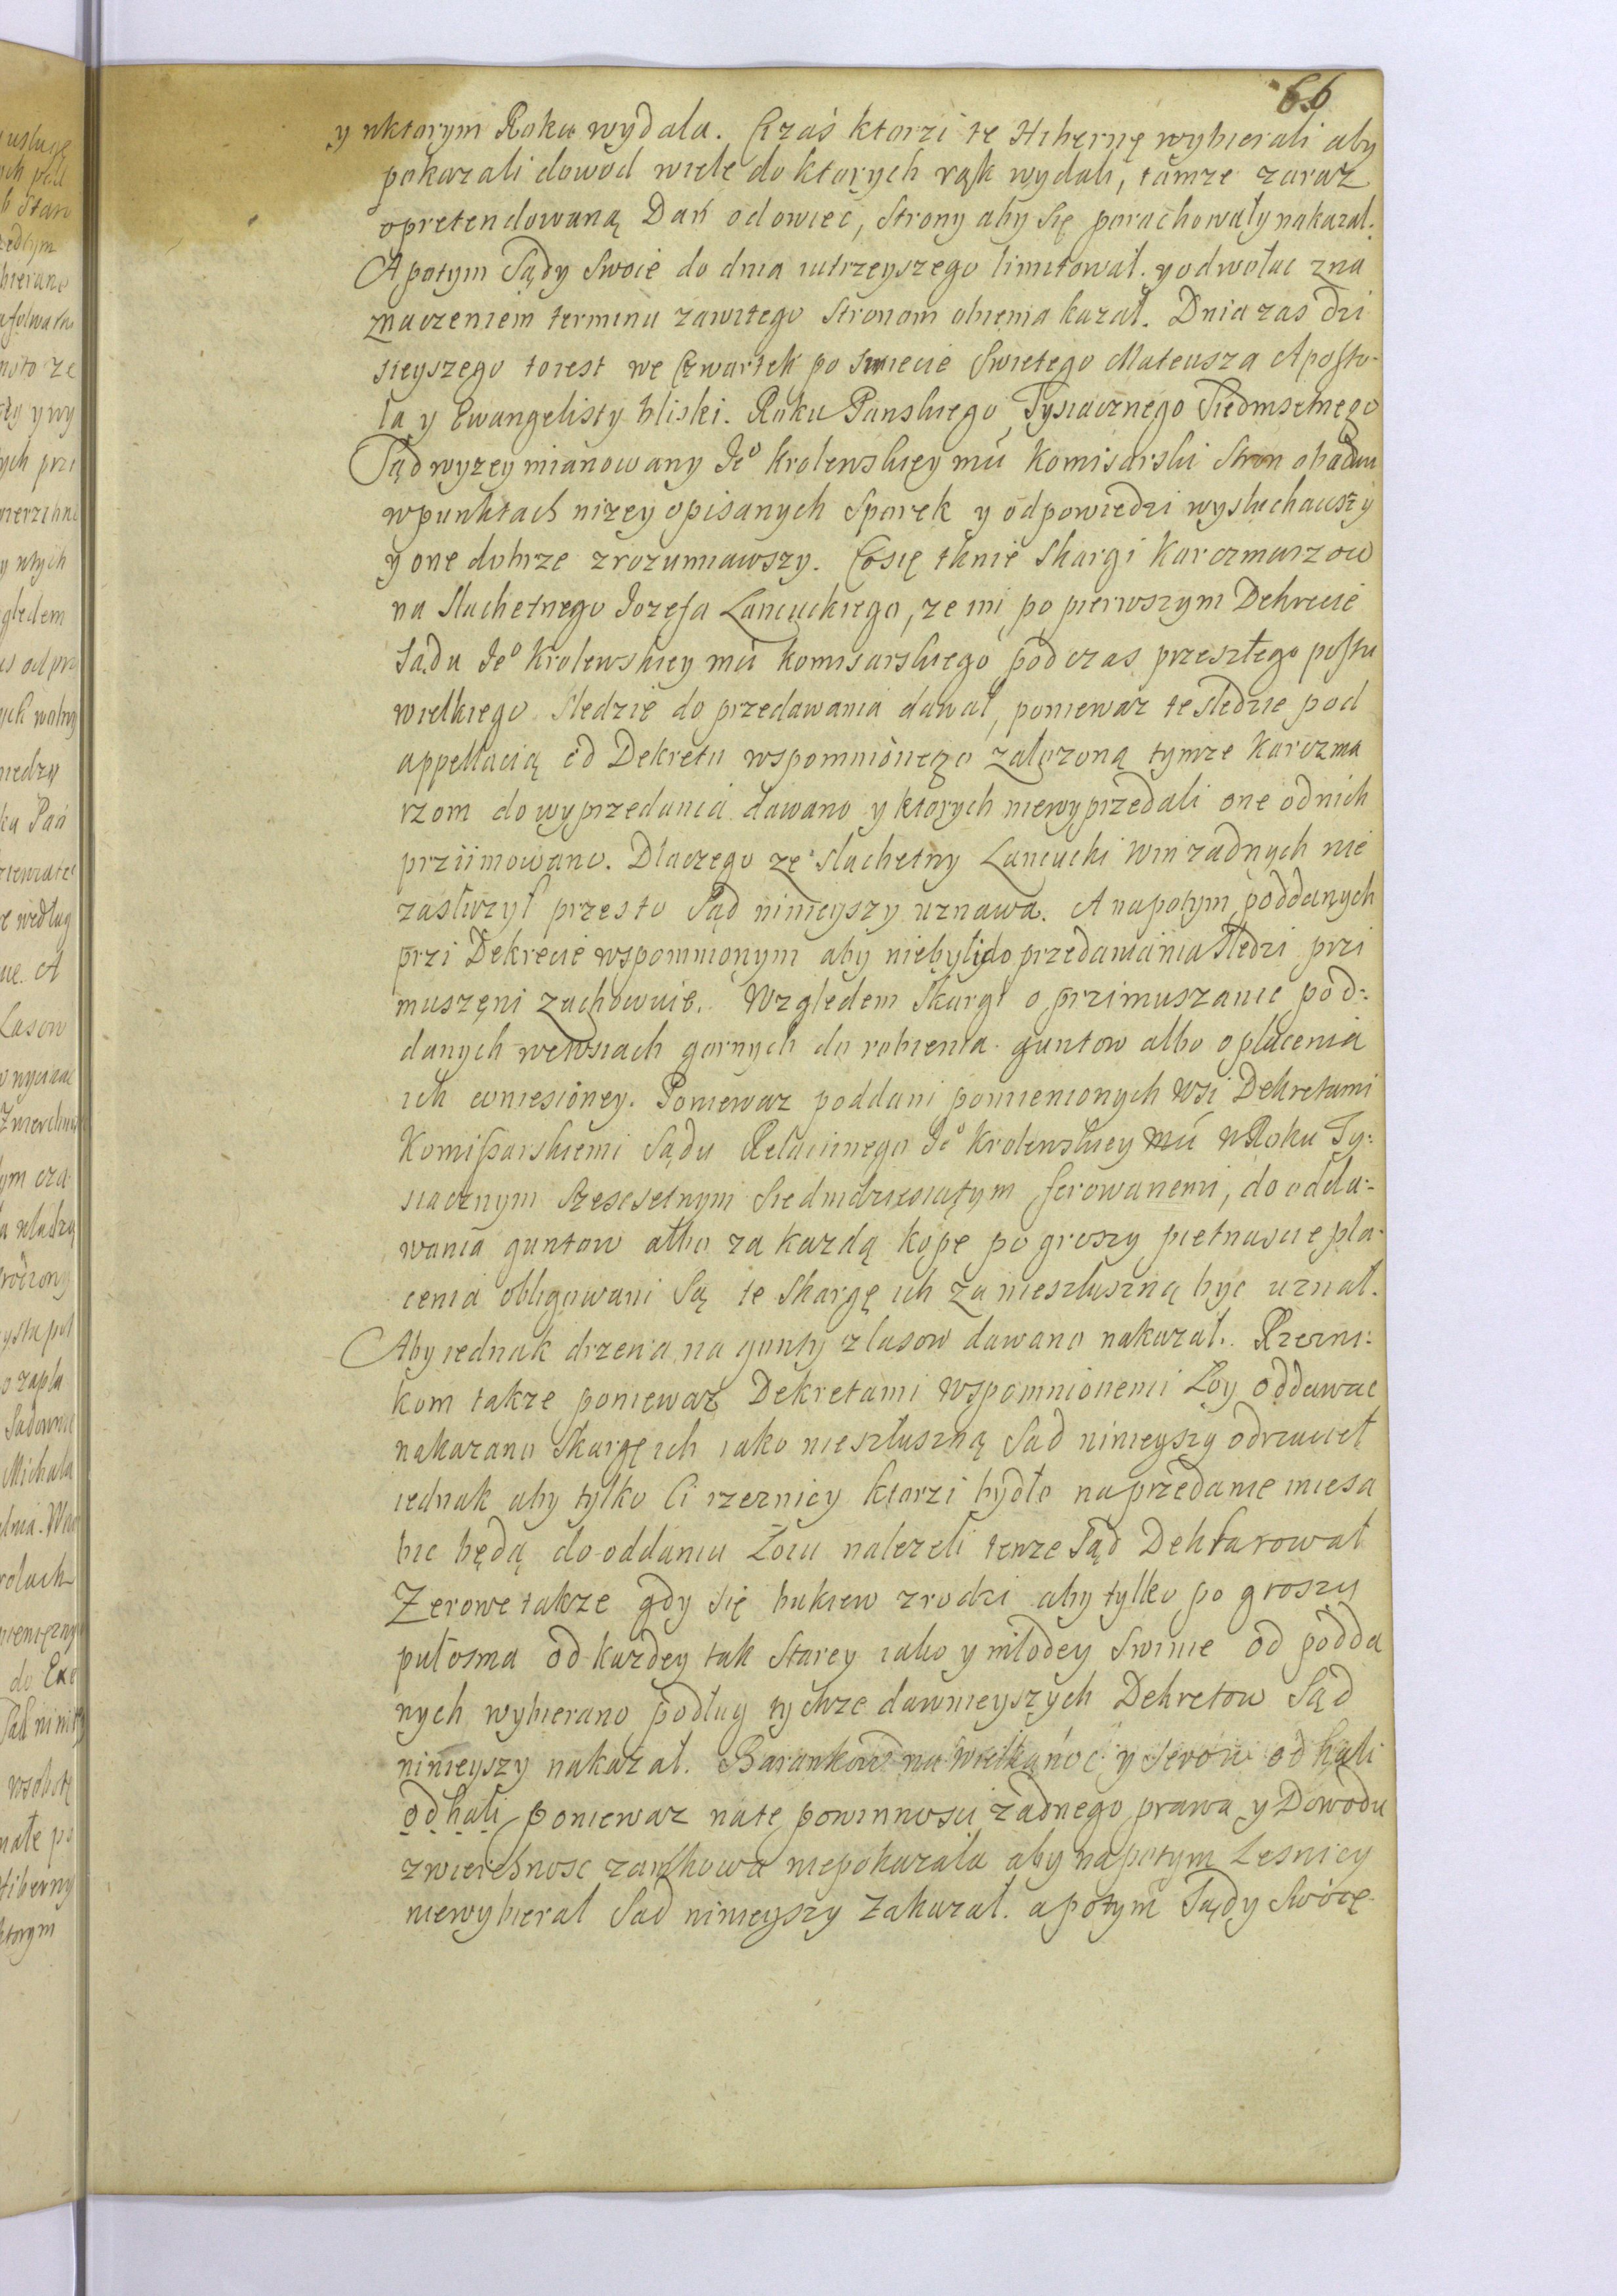 66
y wktorym Roku wydala. Czaś ktorzi te Hibernę wybierali aby
pokazali dowod wiele do ktorych rąk wydali, tamze zaraz
opretendowaną Dań odowiec, Strony aby Się porachowały nakazał.
A potym Sądy Swoie do dnia iutrzeyszego limitował. y odwołac zna
znaczeniem terminu zawitego Stronom obiema kazał. Dnia zas dzi
sieyszego toiest we Czwartek po Swiecie Swietego Mateusza Aposto-
ła y Ewangelisty bliski. Roku Panskiego Tysiacznego Siedmsetnego
Sąd wyzey mianowany Jeo Krolewskiey mci Komisarski Stron obudwu
wpunktach nizey opisanych Sporek y odpowiedzi wysłuchawszy
y one dobrze zrozumiawszy. Cosię tknie Skargi Karczmarzow
na Slachetnego Jozefa Lancuckiego, ze im po pierwszym Dekrecie
Sądu Jeo Krolewskiey mci Komisarskiego podczas przeszłego postu
wielkiego Sledzie do przedawania dawał, poniewaz te Sledzie pod
appellacią od Dekretu wspomnionego załozoną tymze Karczma
rzom do wyprzedania dawano y ktorych niewyprzedali one odnich
prziimowano. Dlaczego ze Slachetny Lancucki win zadnych nie
zasłuzył przesto Sąd ninieyszy uznawa. A napotym poddanych
przi Dekrecie wspomnionym aby niebyli do przedawania Sledzi przi
muszęni zachowuie. Względem Skargi o przimuszanie pod:
danych wewsiach gornych do robienia guntow albo opłacenia
ich wniesioney. Poniewaz poddani pomienionych wsi Dekretami
Komissarskiemi Sądu Relaciinego Jeo Krolewskiey mci wRoku Ty:
siacznym Szescsetnym Siedmdziesiątym ferowanemi, do odda:
wania guntow albo za kazdą kopę po groszy pietnascie pła-
cenia obligowani Są te Skargę ich za niesłuszną byc uznał.
Aby iednak drzewa na gunty zlasow dawano nakazał. Rzezni:
kom takze poniewaz Dekretami wspomnionemi Łoy oddawac
nakazano Skargę ich iako niesłuszną Sad ninieyszy odrzucił
iednak aby tylko Ci rzeznicy ktorzi bydło naprzedanie miesa
bic będą do oddania Łoiu nalezeli tenze Sąd Deklarował
Zerowe takze gdy się bukiew zrodzi aby tylko po groszy
pułosma od kazdey tak Starey iako y młodey Swinie od podda
nych wybierano podług tychze dawnieyszych Dekretow Sąd
ninieyszy nakazał. Barankow na wielkanoc y Serow od hali
od hali poniewaz nate powinnosci zadnego prawa y Dowodu
zwierchnosc zamkowa niepokazała aby napotym Lesnicy
niewybierał Sad ninieyszy Zakazał. apotym Sądy Swoię